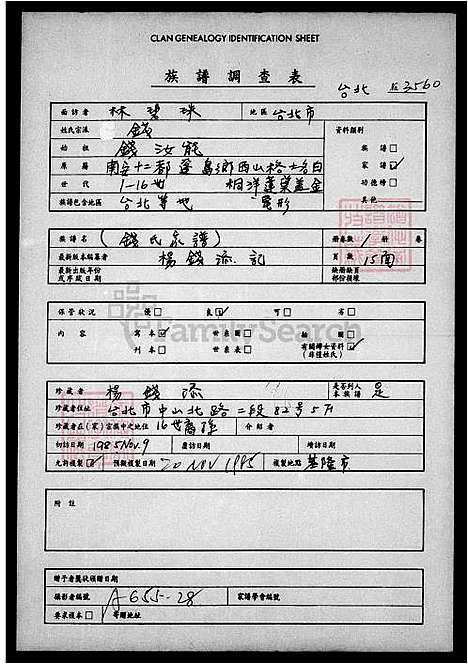 CLAN GENEALOGY IDENTIFICATION SHEET
族譜調查表
台北 3560
面訪者 林 珠 地區 台北市
姓氏宗派 錢 資料類別
始祖 錢汝能 族譜 □
原籍 南安十二都蓬島鄉西山格 家譜 ☑
世代 1-16世 功德榜 □
族譜包含地區 台北等地 其他
族譜名 (錢氏家譜) 冊卷數 1 冊 卷
最新版本編纂者 楊錢添記 頁數 15面
最新出版年份或序跋日期 缺冊缺頁部份損壞
保管狀況 優 □ 良 ☑ 可 □ 劣 □
內容 寫本 ☑ 世系圖 □ 插圖 □
刊本 □ 世系表 □ 有關婦女資料 (非僅姓氏)
FamilySearch
珍藏者 楊錢添 是否列入本族譜 是
珍藏者住址 台北市中山北路二段82号5F
珍藏者在(家)宗族中之地位 16世裔孫 介紹者
初訪日期 1985 Nov. 9 應訪日期 增訪日期
允許複製 ☑ 預擬複製日期 20 NOV 1985 複製地點 基隆市
附註
贈予者獎狀頒贈日期
攝影者編號 A-655-28 家譜學會編號
要求複本 □ 寄贈地址